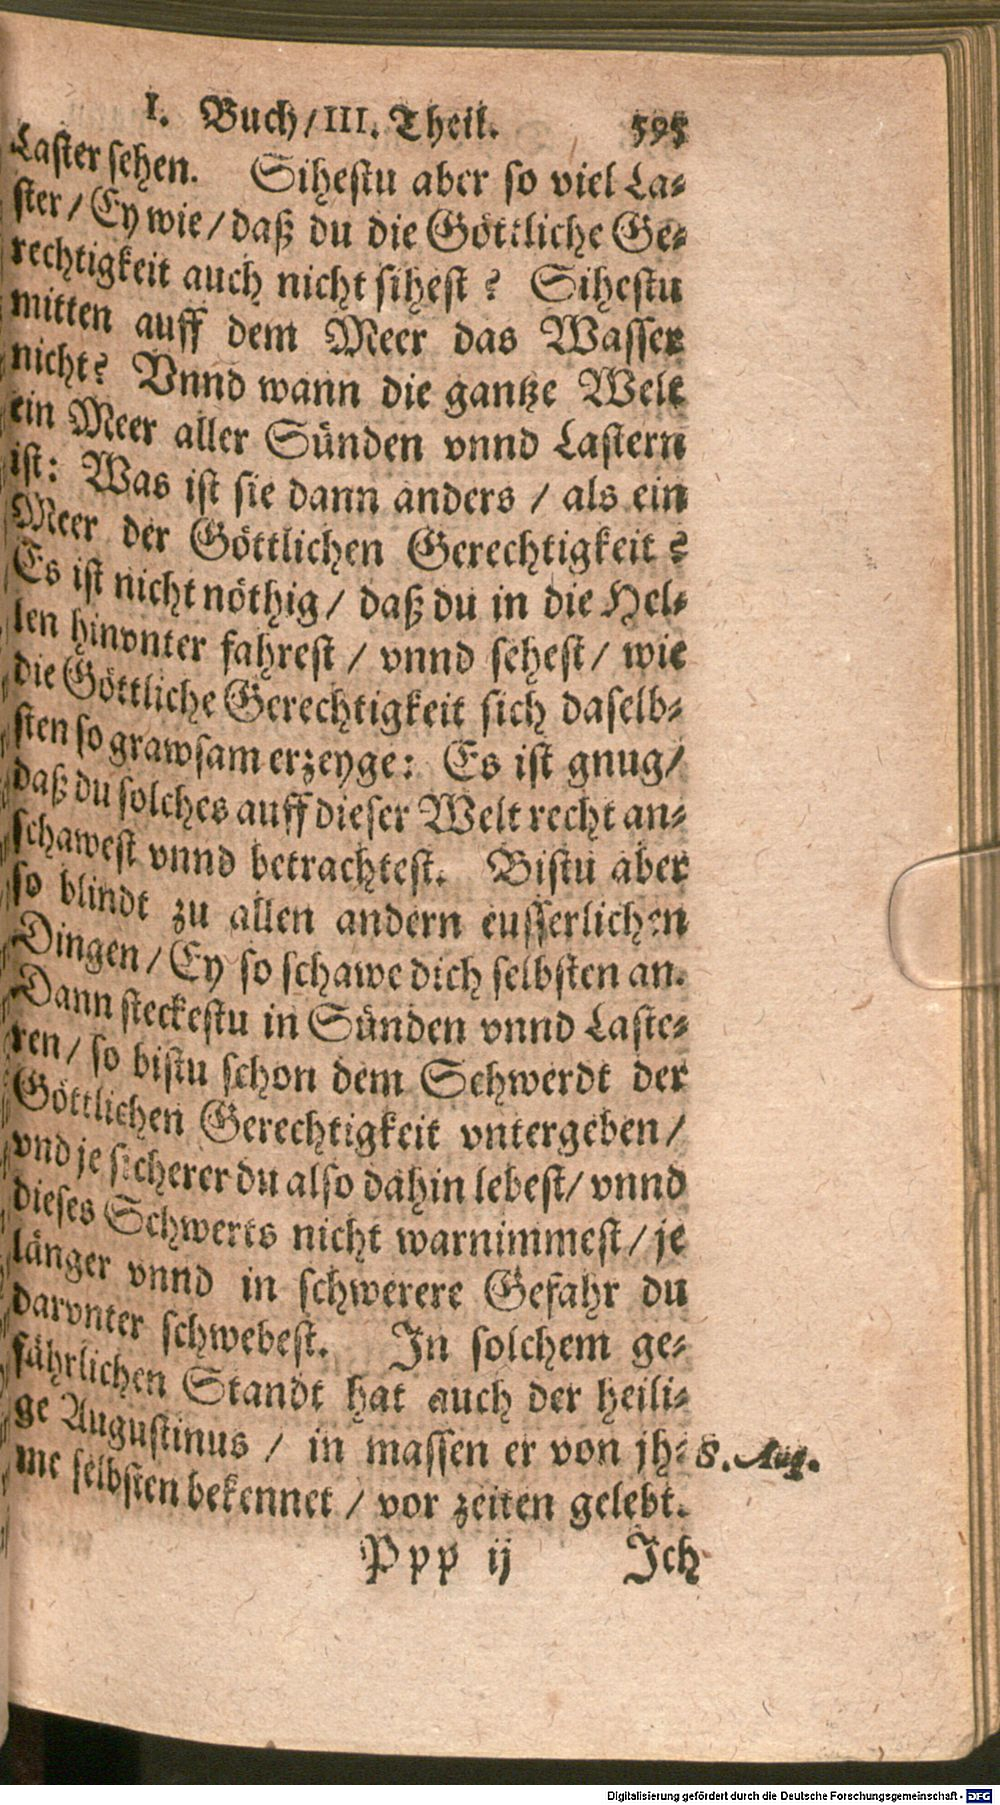 I. Buch/III. Theil. 595
Laster sehen. Sihestu aber so viel La-
ster/Ey wie/daß du die Göttliche Ge-
rechtigkeit auch nicht sihest? Sihestu
mitten auff dem Meer das Wasser
nicht? Vnnd wann die gantze Welt
ein Meer aller Sünden vnnd Lastern
ist: Was ist sie dann anders / als ein
Meer der Göttlichen Gerechtigkeit?
Es ist nicht nöthig/ daß du in die Hel-
len hinvnter fahrest / vnnd sehest/ wie
die Göttliche Gerechtigkeit sich daselb-
sten so grawsam erzeyge: Es ist gnug/
daß du solches auff dieser Welt recht an-
schawest vnnd betrachtest. Bistu aber
so blindt zu allen andern eusserlichen
Dingen/Ey so schawe dich selbsten an.
Dann steckestu in Sünden vnnd Laste-
ren/ so bistu schon dem Schwerdt der
Göttlichen Gerechtigkeit vntergeben/
vnd je sicherer du also dahin lebest/ vnnd
dieses Schwerts nicht warnimmest/je
länger vnnd in schwerere Gefahr du
darvnter schwebest. In solchem ge-
fährlichen Standt hat auch der heili-
ge Augustinus / in massen er von jh- S. Aug.
me selbsten bekennet / vor zeiten gelebt.
Ppp ij Ich
Digitalisierung gefördert durch die Deutsche Forschungsgemeinschaft - DFG